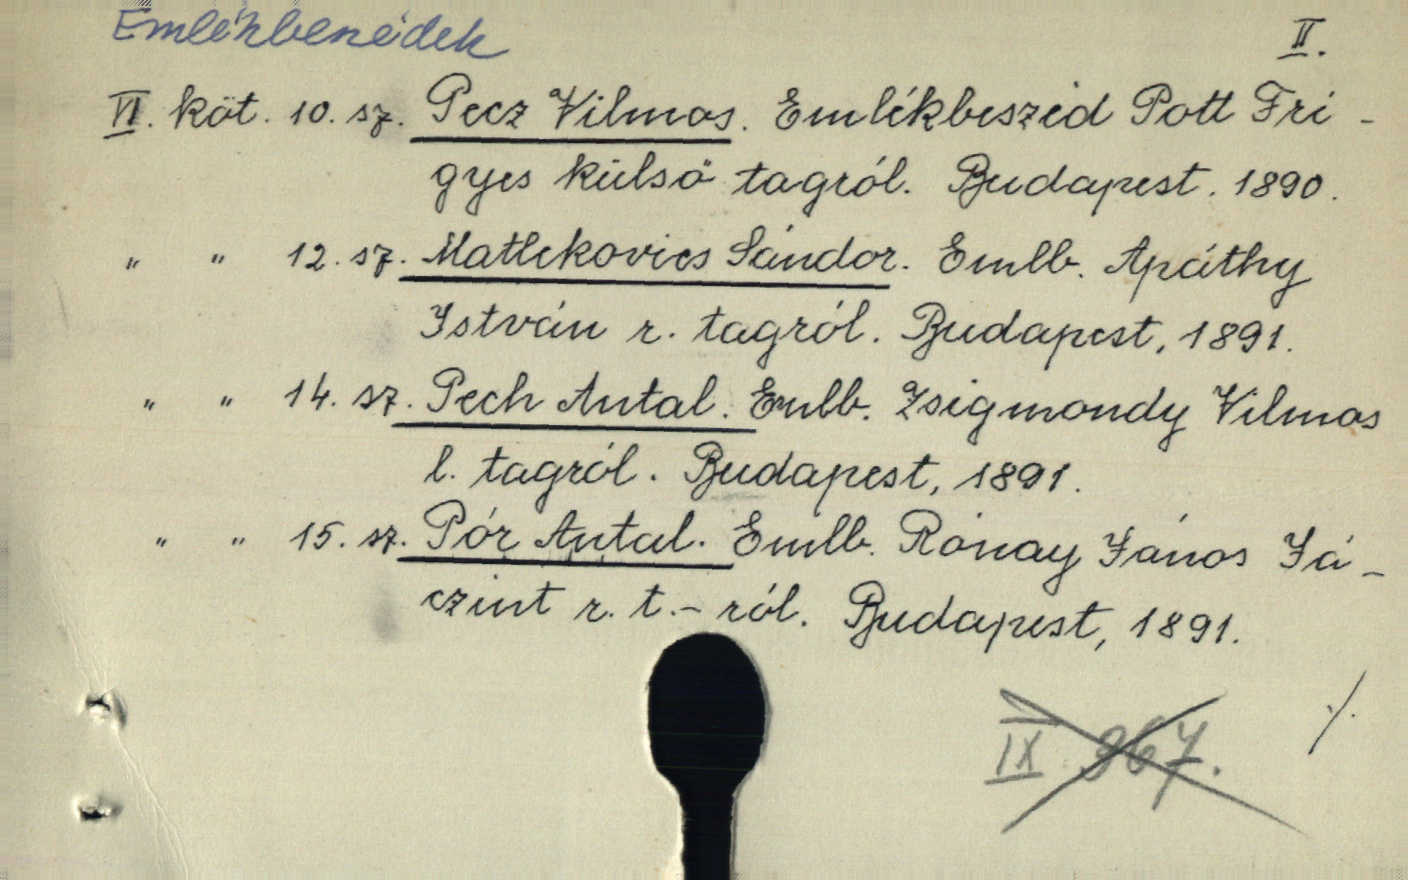 Emlékbeszédek
II.
VI. köt. 10. sz. Pecz Vilmos. Emlékbeszéd Pott Fri-
gyes külső tagról. Budapest. 1890.
" " 12. sz. Matlekovics Sándor. Emlb. Apáthy
István r. tagról. Budapest, 1891.
" " 14. sz. Pech Antal. Emlb. Zsigmondy Vilmos
l. tagról. Budapest, 1891.
" " 15. sz. Pór Antal. Emlb. Rónay János Já-
czint r. t.-ról. Budapest, 1891.
IX. 967.
./.